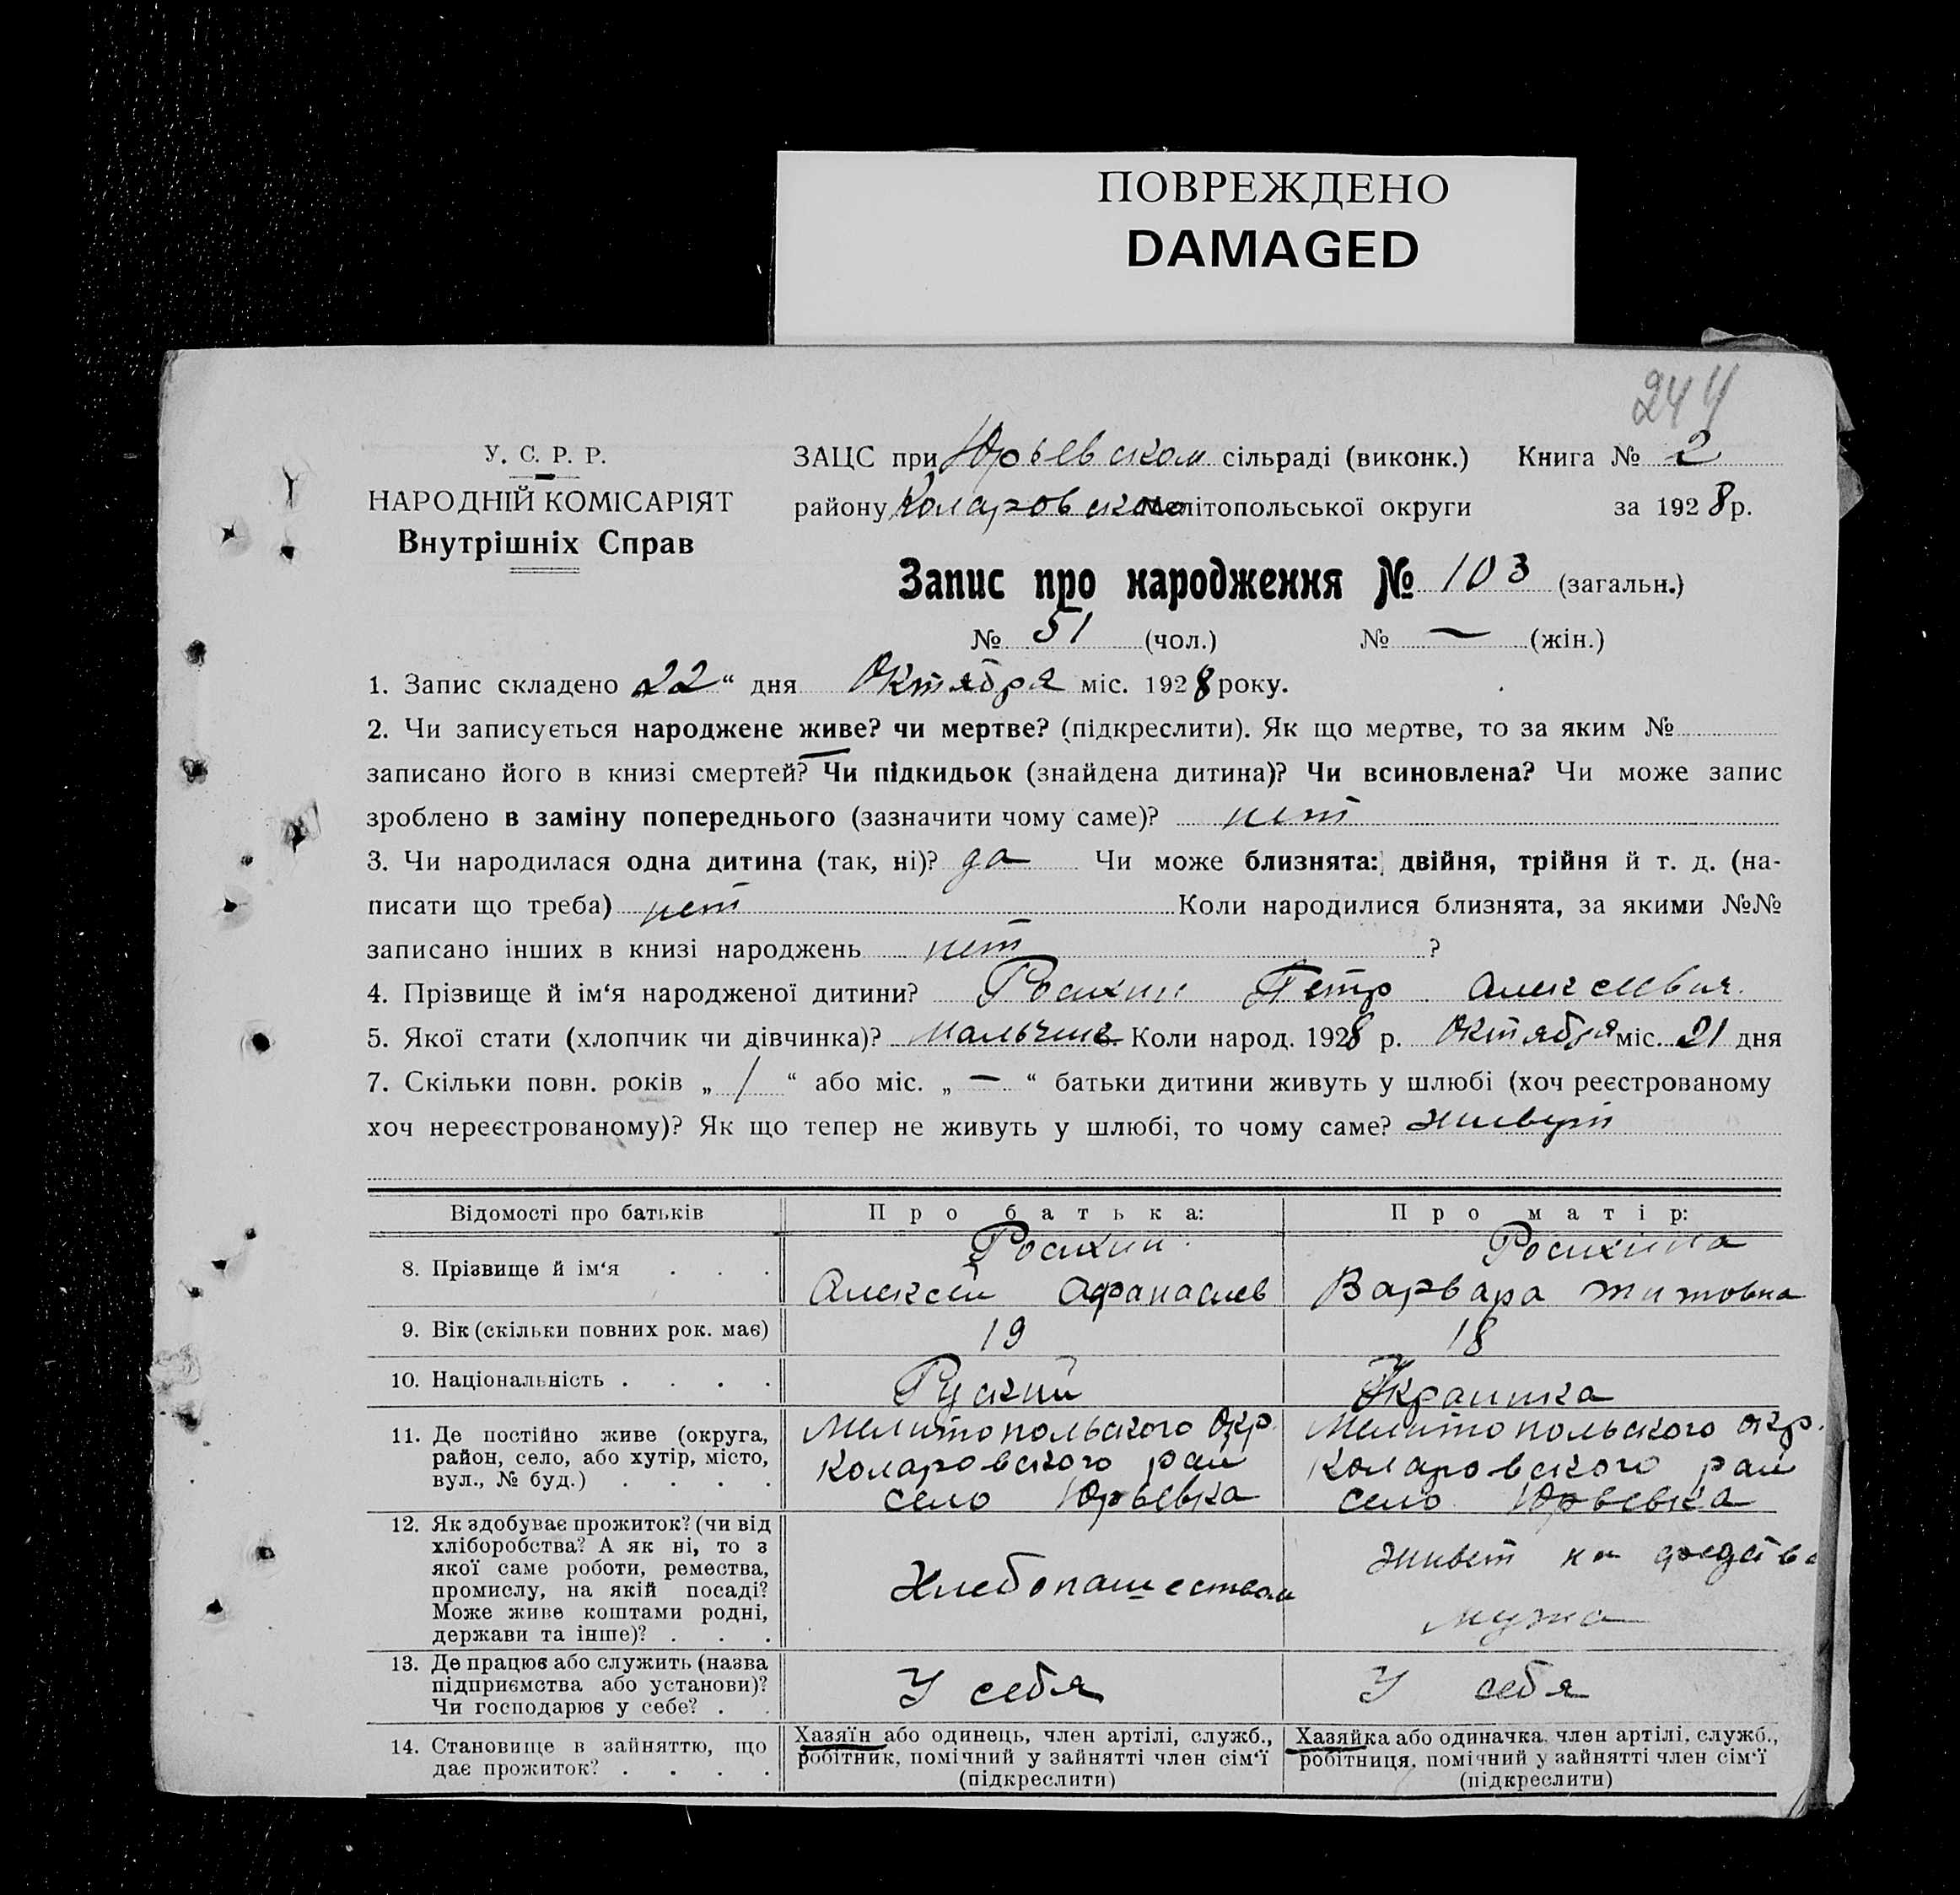 ПОВРЕЖДЕНО
DAMAGED
244
У. С. Р. Р.
НАРОДНІЙ КОМІСАРІЯТ
Внутрішніх Справ
ЗАЦС при Юрьевском сільраді (виконк.) Книга № 2
району Коларовского Мелітопольської округи за 1928 р.
Запис про народження № 103 (загальн.)
№ 51 (чол.) № — (жін.)
1. Запис складено 22 “ дня Октября міс. 1928 року.
2. Чи записується народжене живе? чи мертве? (підкреслити). Як що мертве, то за яким №
записано його в книзі смертей? Чи підкидьок (знайдена дитина)? Чи всиновлена? Чи може запис
зроблено в заміну попереднього (зазначити чому саме)? нет
3. Чи народилася одна дитина (так, ні)? да Чи може близнята: двійня, трійня й т. д. (на-
писати що треба) нет Коли народилися близнята, за якими №№
записано інших в книзі народжень нет ?
4. Прізвище й ім‘я народженої дитини? Росихин Петр Алексеевич
5. Якої стати (хлопчик чи дівчинка)? Мальчик Коли народ. 1928 р. Октября міс. 21 дня
7. Скільки повн. років „ 1 “ або міс. „ — “ батьки дитини живуть у шлюбі (хоч реєстрованому
хоч нереєстрованому)? Як що тепер не живуть у шлюбі, то чому саме? живут
Відомості про батьків Про батька: Про матір:
8. Прізвище й ім‘я . . . Росихин Алексей Афанасиев Росихина Варвара Титовна
9. Вік (скільки повних рок. має) 19 18
10. Національність . . . . Руский Украинка
11. Де постійно живе (округа,
район, село, або хутір, місто,
вул., № буд.) . . . .
Мелитопольского Окр.
Коларовского рай
село Юрьевка
Мелитопольского окр.
Коларовского рай
село Юрьевка
12. Як здобуває прожиток? (чи від
хліборобства? А як ні, то з
якої саме роботи, ремества,
промислу, на якій посаді?
Може живе коштами родні,
держави та інше)? . . .
Хлебопашеством
живет на средства
мужа
13. Де працює або служить (назва
підприємства або установи)?
Чи господарює у себе? . .
У себя
У себя
14. Становище в зайняттю, що
дає прожиток? . . . .
Хазяїн або одинець, член артілі, служб.,
робітник, помічний у зайнятті член сім‘ї
(підкреслити)
Хазяйка або одиначка, член артілі, служб.,
робітниця, помічний у зайнятті член сім‘ї
(підкреслити)